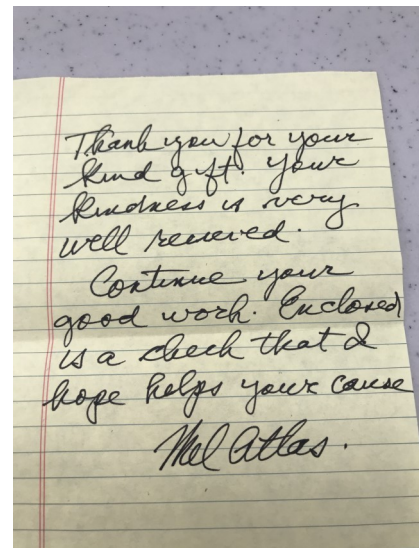 Thank you for your
kind gift. Your
kindness is very
well received.
Continue your
good work. Enclosed
is a check that I
hope helps your cause
Mel Atlas.